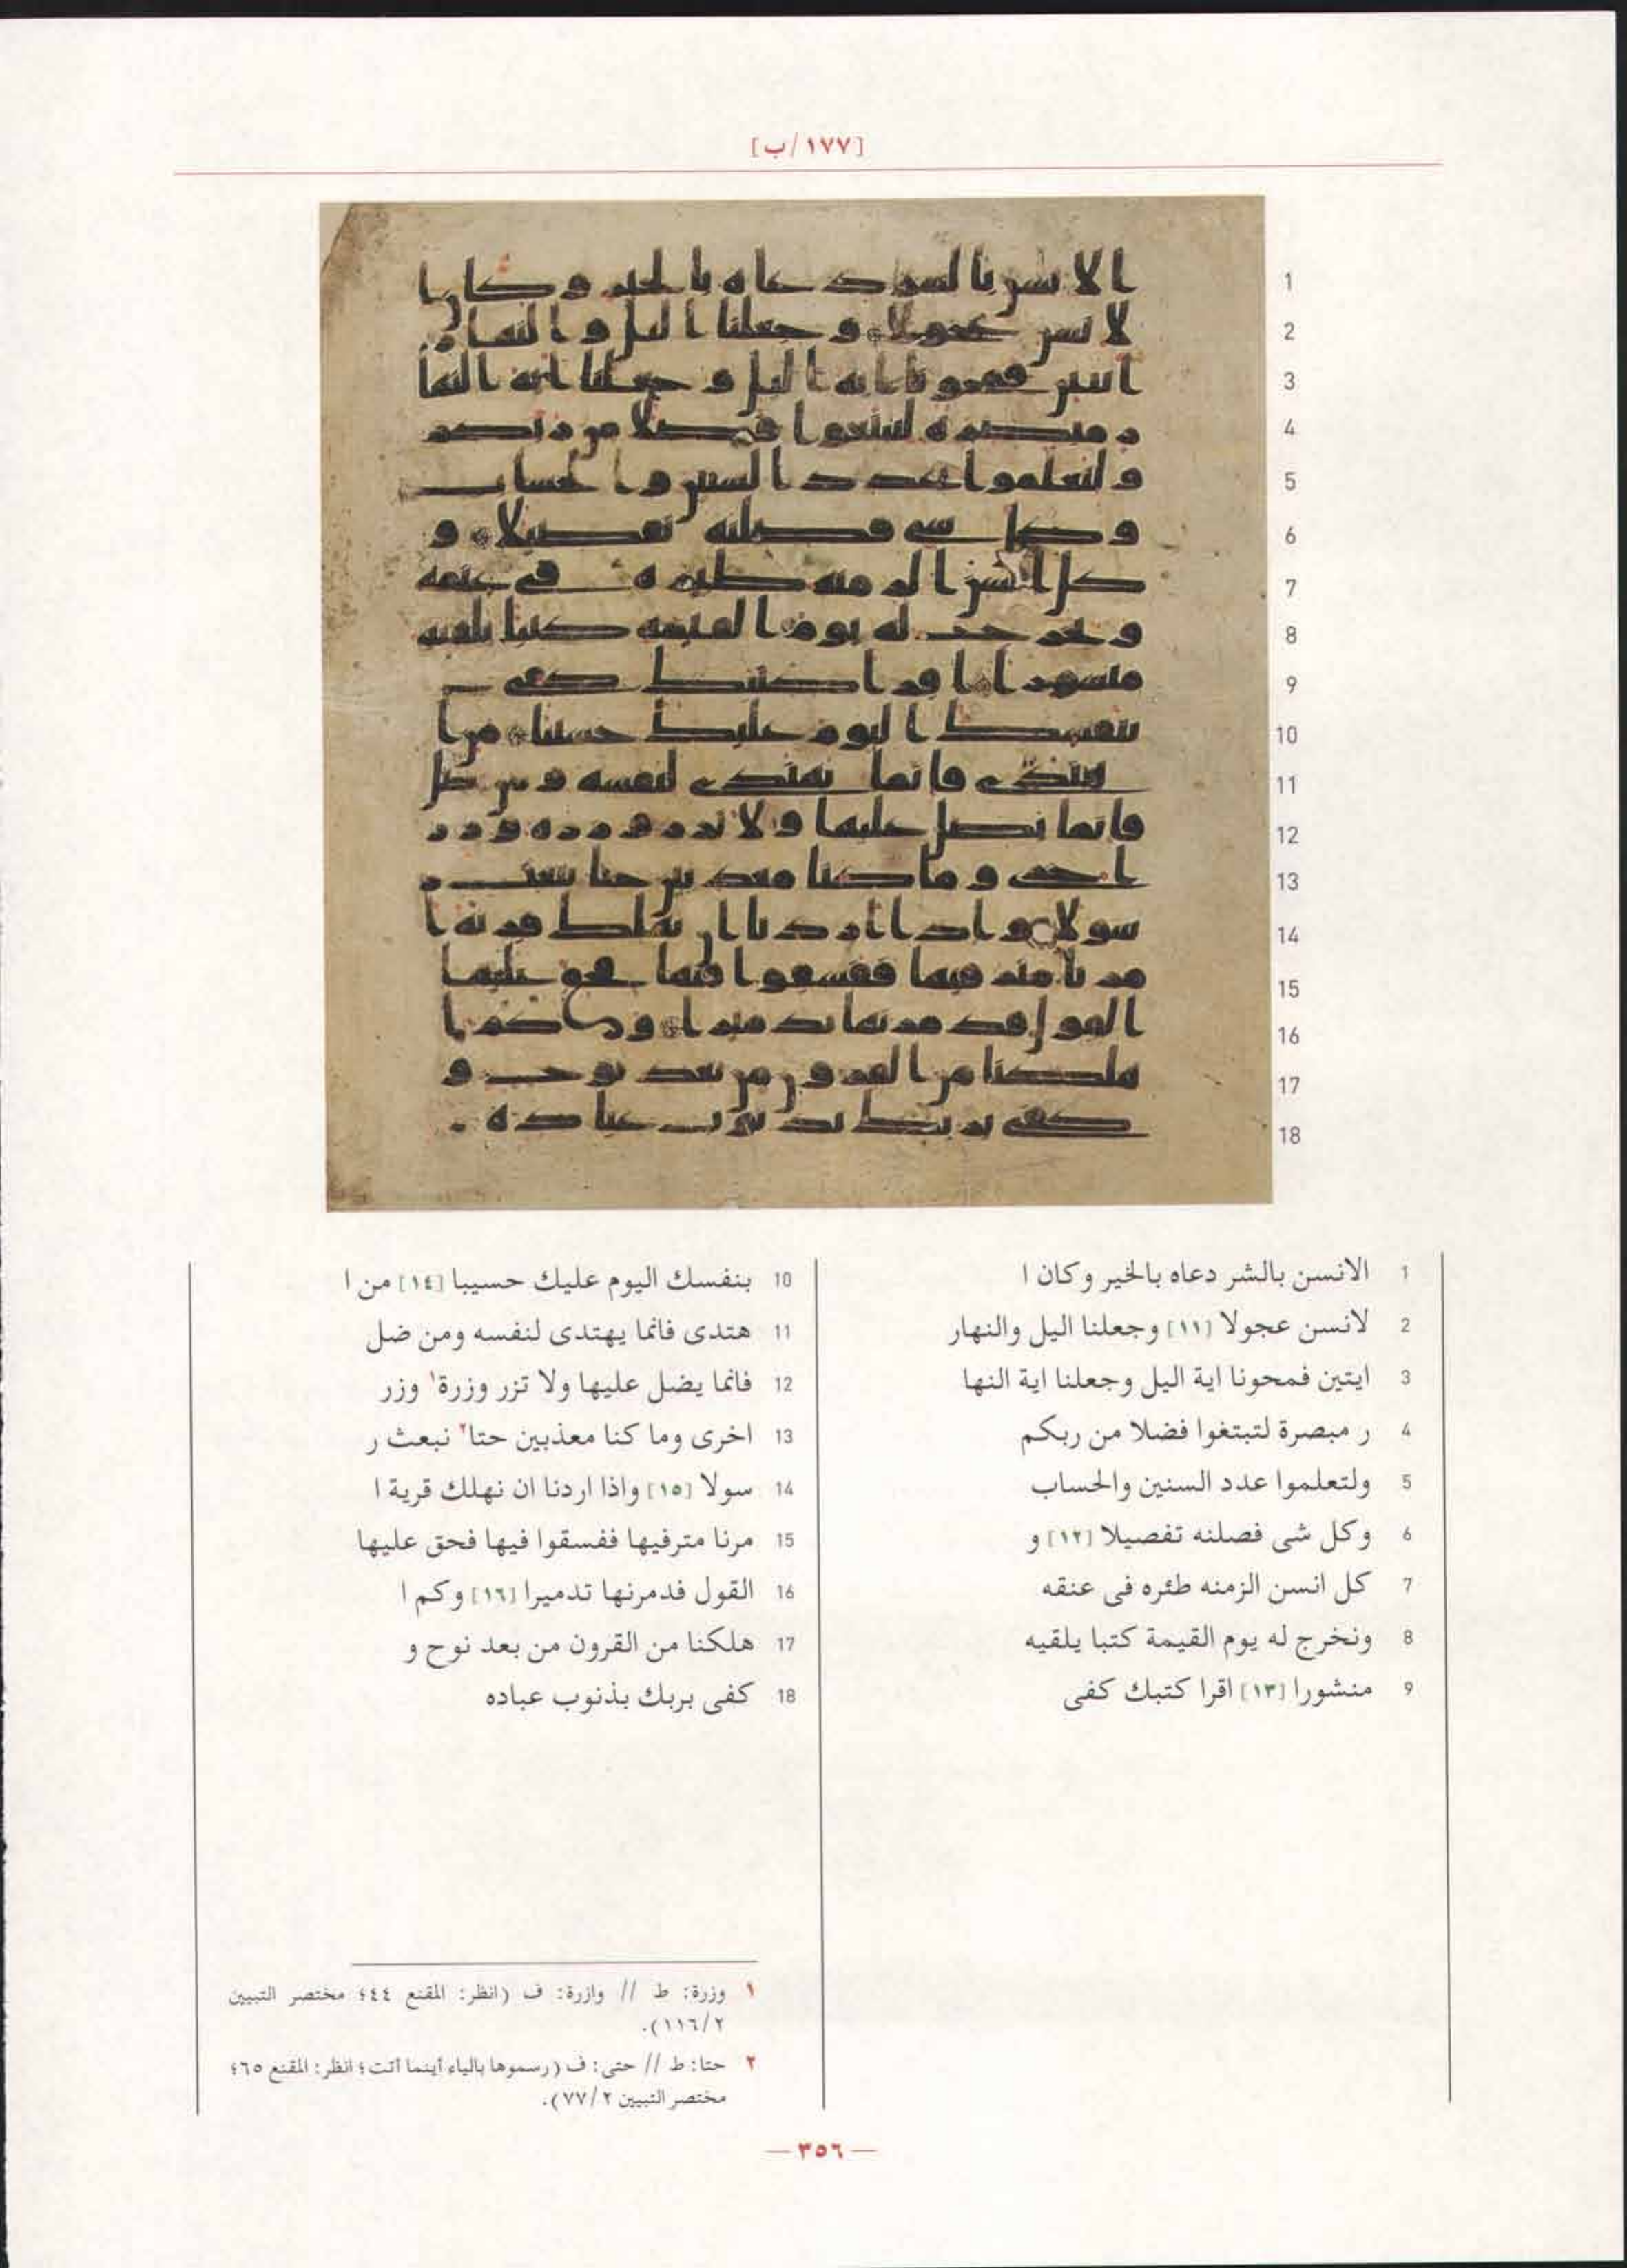 [١٧٧/ب]
1 الانسن بالشر دعاه بالخير وكان ا
2 لانسن عجولا [١١] وجعلنا اليل والنهار
3 ايتين فمحونا اية اليل وجعلنا اية النها
4 ر مبصرة لتبتغوا فضلا من ربكم
5 ولتعلموا عدد السنين والحساب
6 وكل شى فصلنه تفصيلا [١٢] و
7 كل انسن الزمنه طئره فى عنقه
8 ونخرج له يوم القيمة كتبا يلقيه
9 منشورا [١٣] اقرا كتبك كفى
10 بنفسك اليوم عليك حسيبا [١٤] من ا
11 هتدى فانما يهتدى لنفسه ومن ضل
12 فانما يضل عليها ولا تزر وزرة١ وزر
13 اخرى وما كنا معذبين حتا٢ نبعث ر
14 سولا [١٥] واذا اردنا ان نهلك قرية ا
15 مرنا مترفيها ففسقوا فيها فحق عليها
16 القول فدمرنها تدميرا [١٦] وكم ا
17 هلكنا من القرون من بعد نوح و
18 كفى بربك بذنوب عباده
١ وزرة: ط // وازرة: ف (انظر: المقنع ٤٤؛ مختصر التبيين
٢/١١٦).
٢ حتا: ط // حتى: ف (رسموها بالياء أينما أتت؛ انظر: المقنع ٦٥؛
مختصر التبيين ٢/٧٧).
— ٣٥٦ —